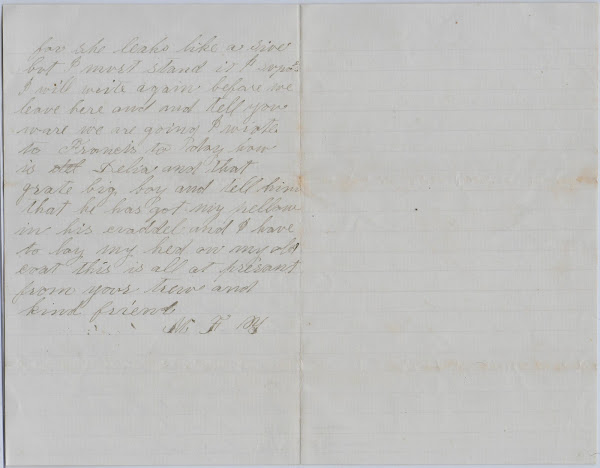 for she leaks like a sive
but I must stand it I supose
I will write again before we
leave here and and tell you
ware we are going I wrote
to Francis to day how
is Delia and that
grate big boy and tell him
that he has got my pellow
in his craddel and I have
to lay my hed on my old
coat this is all at présant
from your trew and
kind friend
F